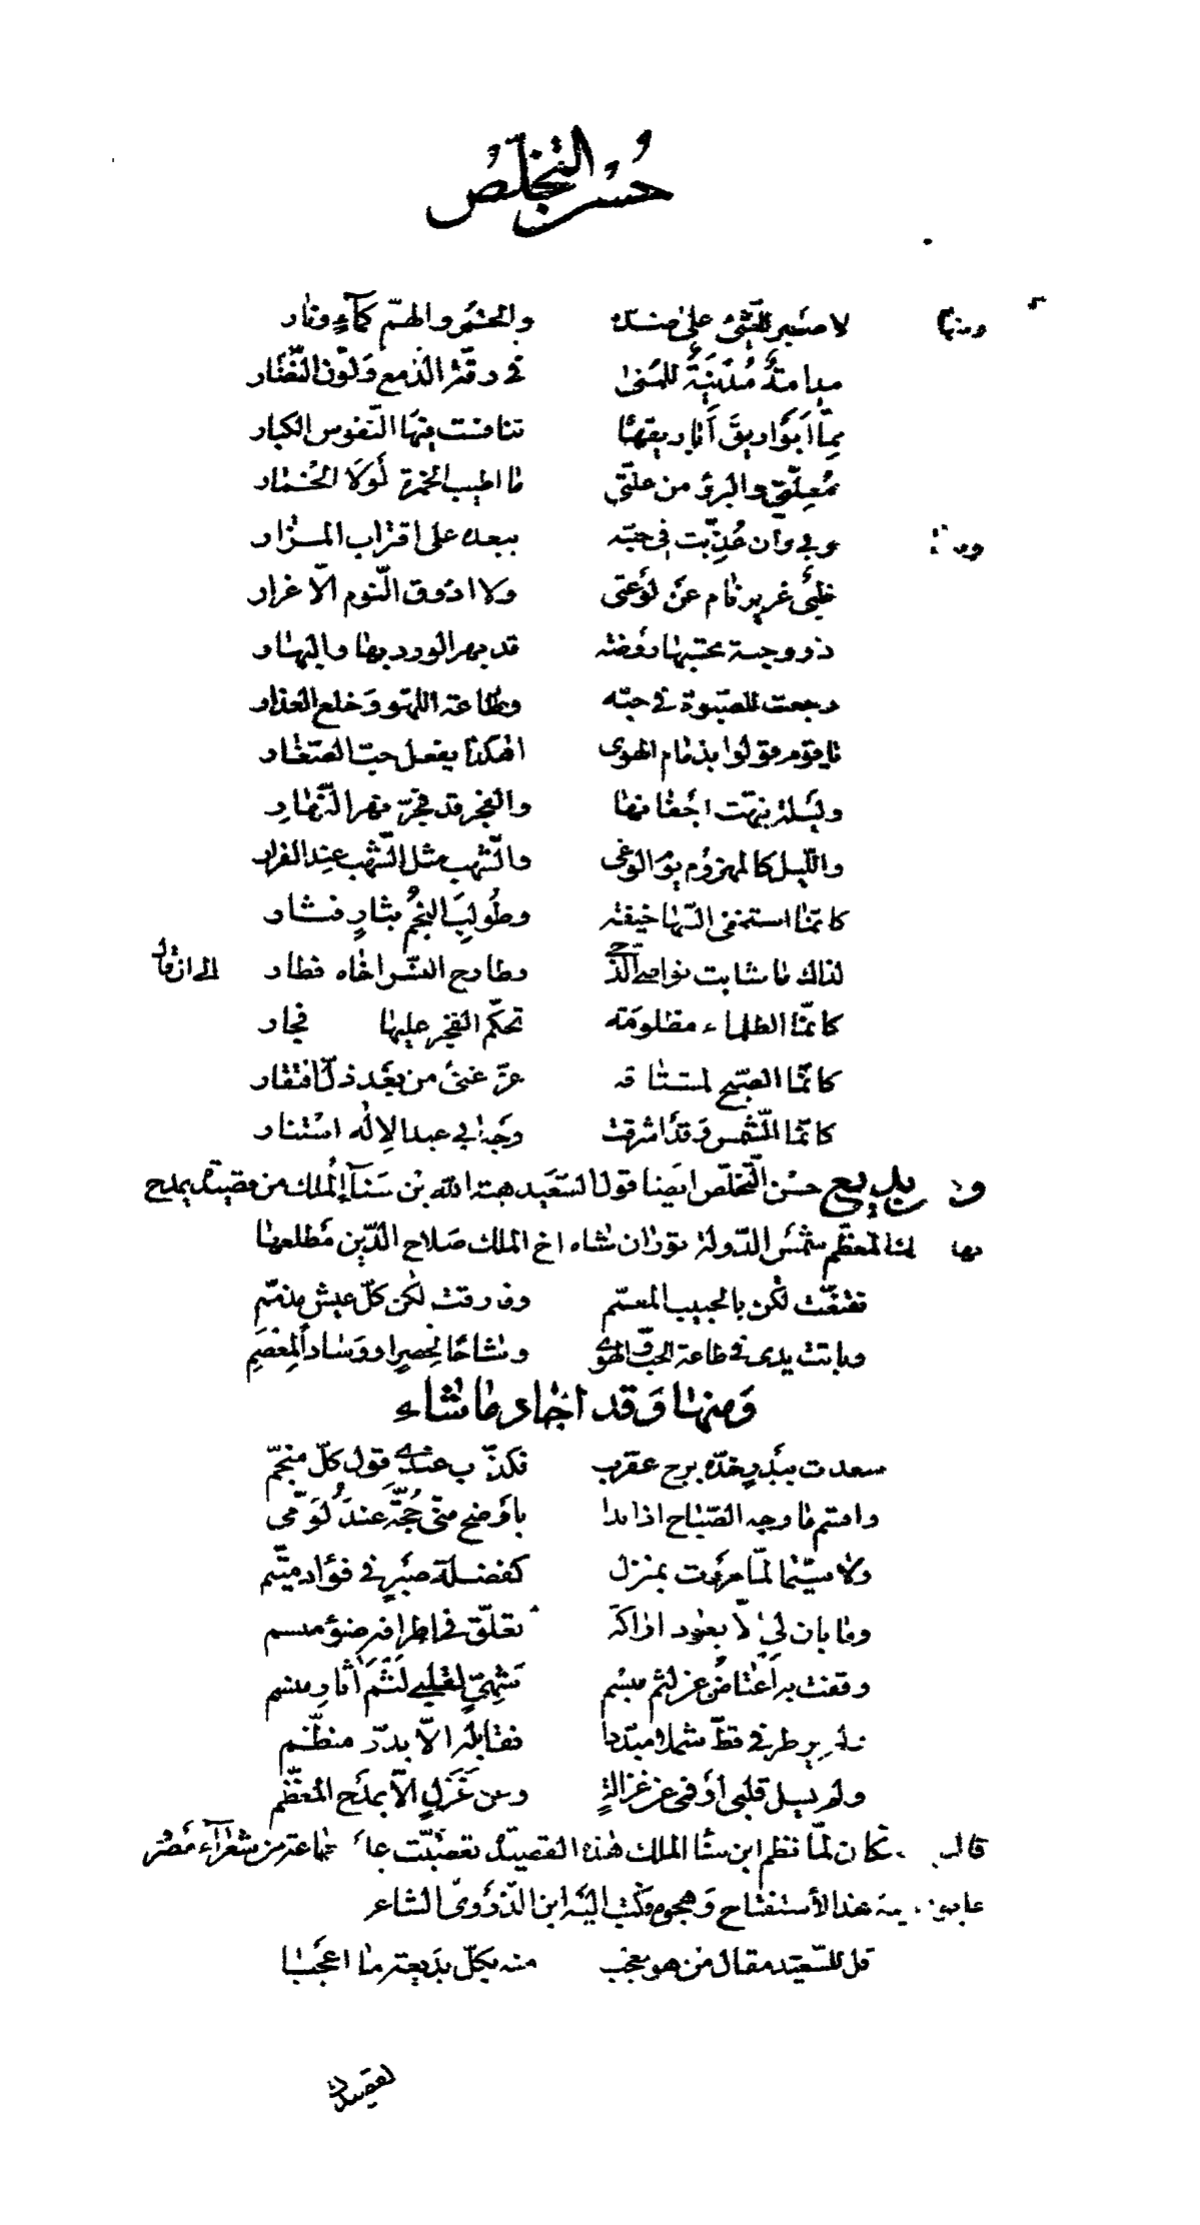 حُسْن التخلّص
ومنها لا صبر للشئ على ضده والخمر والهمّ كمآء ونار
مدامة مُدنيَةٌ للمنى في رقّة الدمع ولون النّضار
ممّا أبو أباريقها تنافست فيها النّفوس الكبار
مُعِلّتي والبرؤ من علّتي ما اطيب الخمرة لولا الخمار
وان عُذّبت في حبّه ببعده على اقتراب المزار
ظبي غرير نام عن لوعتي ولا اذوق النّوم الّا غرار
ذو وجنة روضة قد بهر الورد بها والبهار
رجعت للصّبوة في حبّه وطاعة اللهو وخلع العذار
يا قوم قولوا بذمام الهوى اهكذا يفعل حبّ الصّغار
وليلة نبّهت اجفانها والفجر قد فجّر نهر النّهار
والليل كالمهزوم يوم الوغى والشّهب مثل الشّهب عند الفرار
كانّما استخفى السّها خيفة وطُولِبَ النجم بثارٍ فثار
لذاك ما شابت نواصي الدّجى وطارح النسر اخاه فطار الى ان قال
كانّما الظلماء مظلومة تحكّم الفجر عليها فجار
كانّما الصّبح لمشتاقه عزّ غنى من بعد ذلّ افتقار
كانّما الشّمس وقد اشرقت وجه ابي عبد الإله استنار
ومن بديع حسن التخلّص ايضا قول السّعيد هبة الله بن سنآء الملك من قصيدة يمدح
بها الملك المعظّم شمس الدّولة توران شاه اخ الملك صلاح الدّين مطلعها
تقنّعت لكن بالحبيب المعمّم وفارقت لكن كلّ عيش مذمّم
وباتت يدي في طاعة الحبّ والهوى وشاحًا لخصرٍ او وسادا لمعصم
ومنها وقد اجاد ما شاء
سعدت ببدرٍ خدّه برج عقرب فكذّب عندي قول كلّ منجّم
واقسم ما وجه الصّباح اذا بدا باوضح منّي حُجّة عند لُوّمي
ولا سيّما لمّا مررت بمنزل كفضلة صبرٍ في فؤاد متيّم
وما بان لي الّا بعود اراكة تعلّق في اطرافه ضوء مبسم
وقفت به اعتاض عن لثم مبسم شهيّ لقلبي لثم آثار منسم
ولم ير طرفي قطّ شملا مبدّدا فقابله الّا بدرّ منظّم
ولم يسل قلبي او فمي عن غزالة وعن غزلٍ الّا بمدح المعظّم
قال كان لمّا نظم ابن سنا الملك هذه القصيدة تعصّبت جماعة من شعرآء مصر
هذا الأستفتاح وهجوه وكتب اليه ابن الذّروي الشاعر
قل للسّعيد مقال من هو معجب منه بكلّ بديعة ما اعجبا
لقصيدة